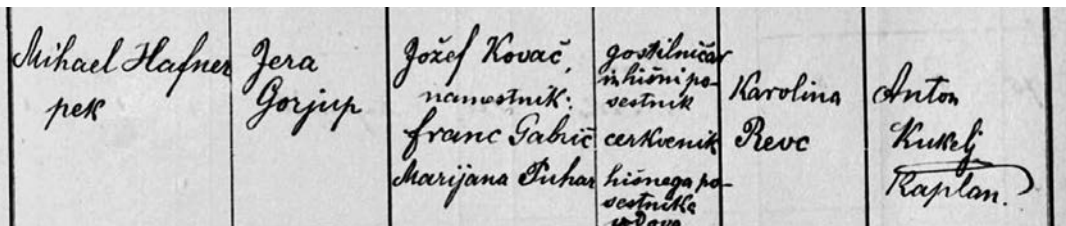 Mihael Hafner
pek
Jera
Gorjup
Jožef Kovač,
namestnik:
Franc Gabrič
Marijana Puhar
gostilničar
in hišni po-
sestnik
cerkvenik
hišnega po-
sestnika
vdova
Karolina
Revc
Anton
Kukelj
Kaplan.